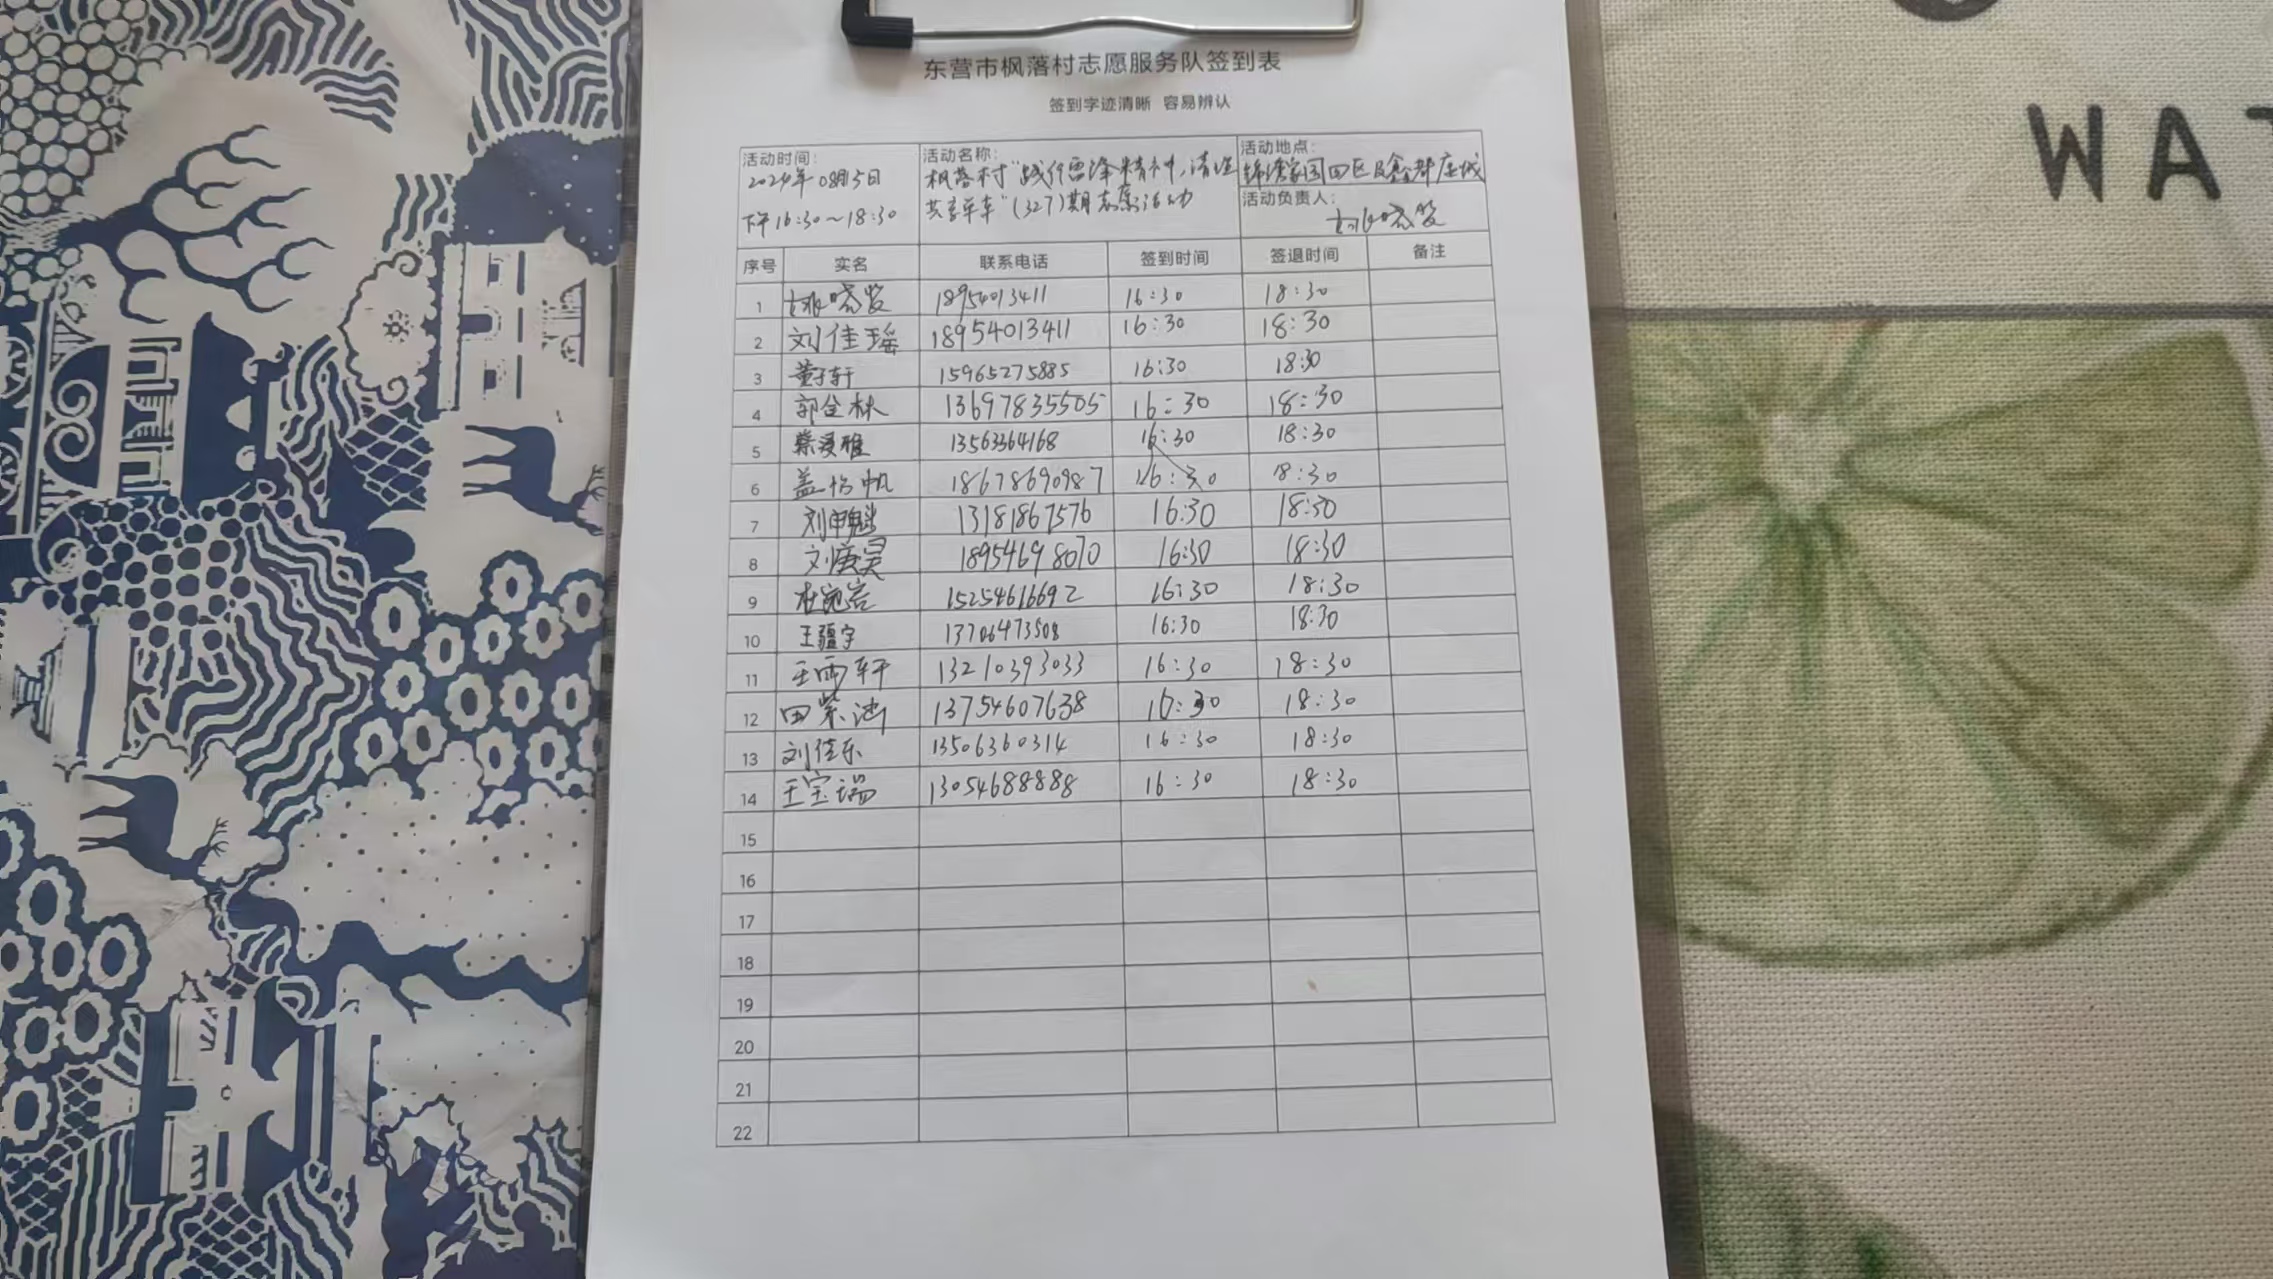 东营市枫落村志愿服务队签到表
签到字迹清晰 容易辨认
活动时间:
2024年08月5日
下午16:30~18:30
活动名称:
枫落村"践行雷锋精神,清洁
共享单车"(327)期志愿活动
活动地点:
锦绣家园四区及鑫都庄城
活动负责人:
姚晓
序号 实名 联系电话 签到时间 签退时间 备注
1 姚晓 18954013411 16:30 18:30
2 刘佳瑶 18954013411 16:30 18:30
3 董子轩 15965275885 16:30 18:30
4 郭金林 13697835505 16:30 18:30
5 蔡漫雅 13563364168 16:30 18:30
6 盖怡帆 18678690987 16:30 18:30
7 刘申魁 13181867576 16:30 18:30
8 刘庚昊 18954698070 16:30 18:30
9 杜宛岩 15254616692 16:30 18:30
10 王疆宇 13706473508 16:30 18:30
11 王雨轩 13210393033 16:30 18:30
12 田紫涵 13754607638 16:30 18:30
13 刘佳乐 13506360314 16:30 18:30
14 王宝瑞 13054688888 16:30 18:30
15
16
17
18
19
20
21
22
WAT